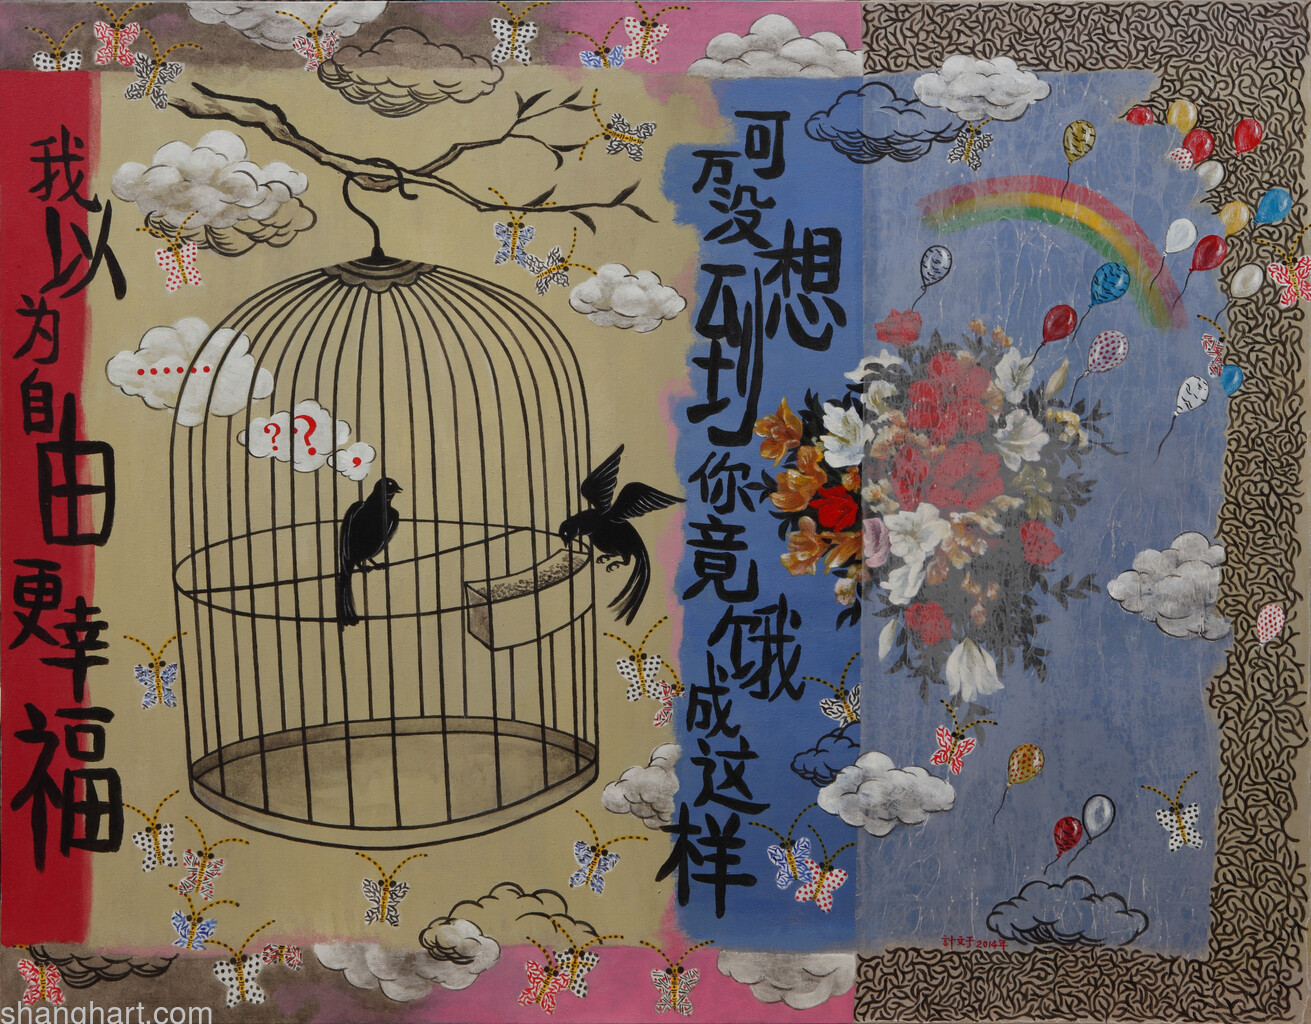 我以为自由更幸福
……
??,
可万没想到你竟饿成这样
計文于2014年
shanghart.com